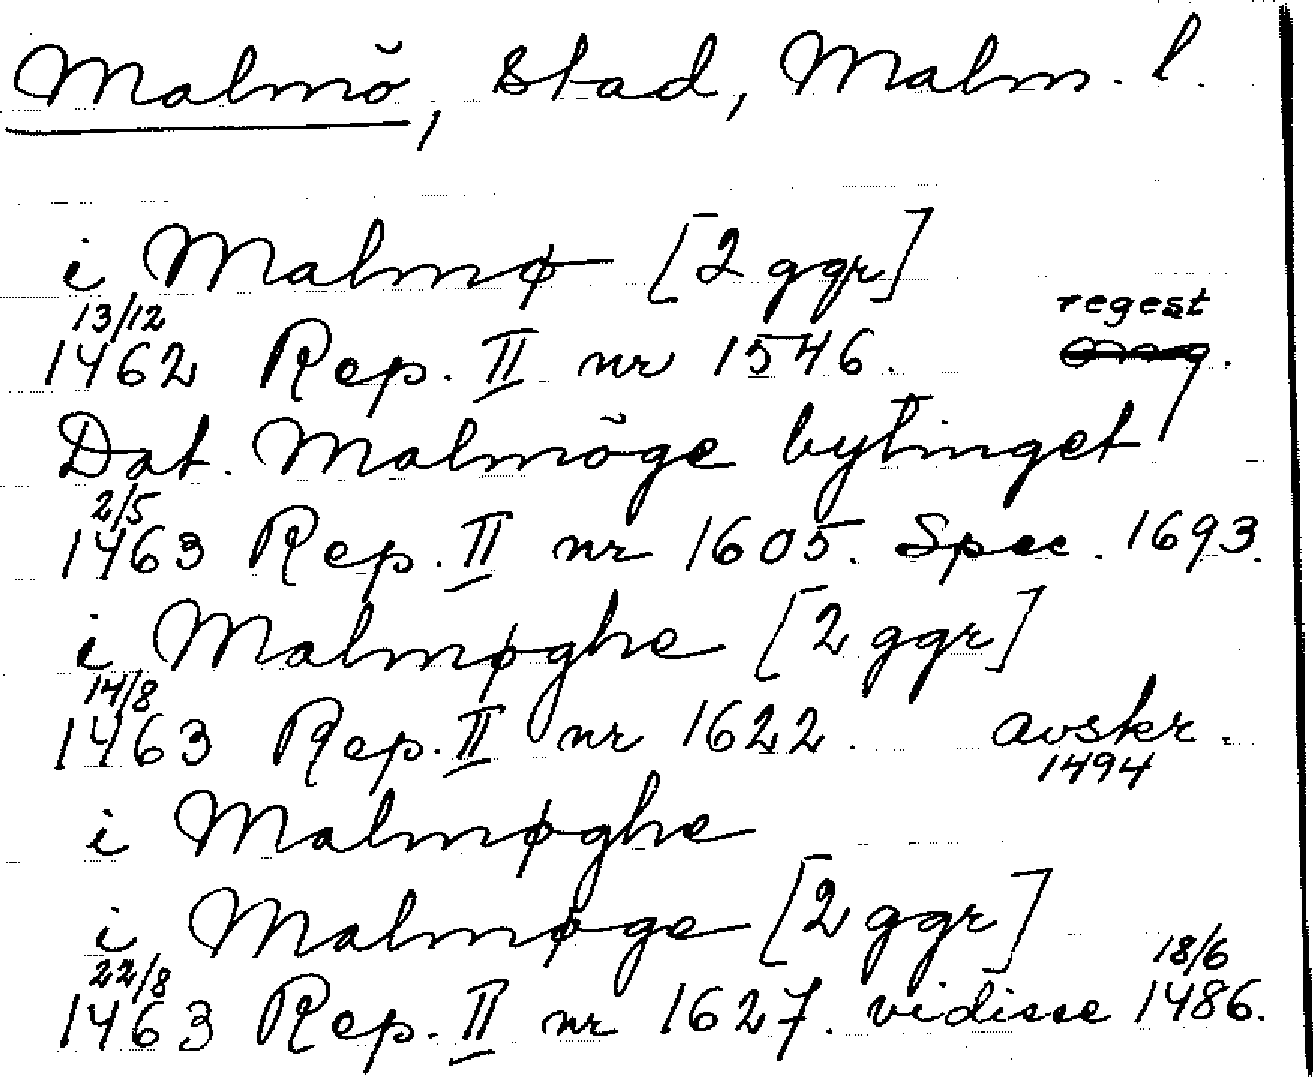 Malmö, stad, Malm. l.
i Malmø [2 ggr]
13/12
regest
1462 Rep. II nr 1546.
Dat. Malmöge bytinget
2/5
1463 Rep. II nr 1605. Spec. 1693.
i Malmøghe [2 ggr]
14/8
1463 Rep. II nr 1622. avskr.
1494
i Malmøghe
i Malmøge [2 ggr]
22/8 18/6
1463 Rep. II nr 1627. vidisse 1486.